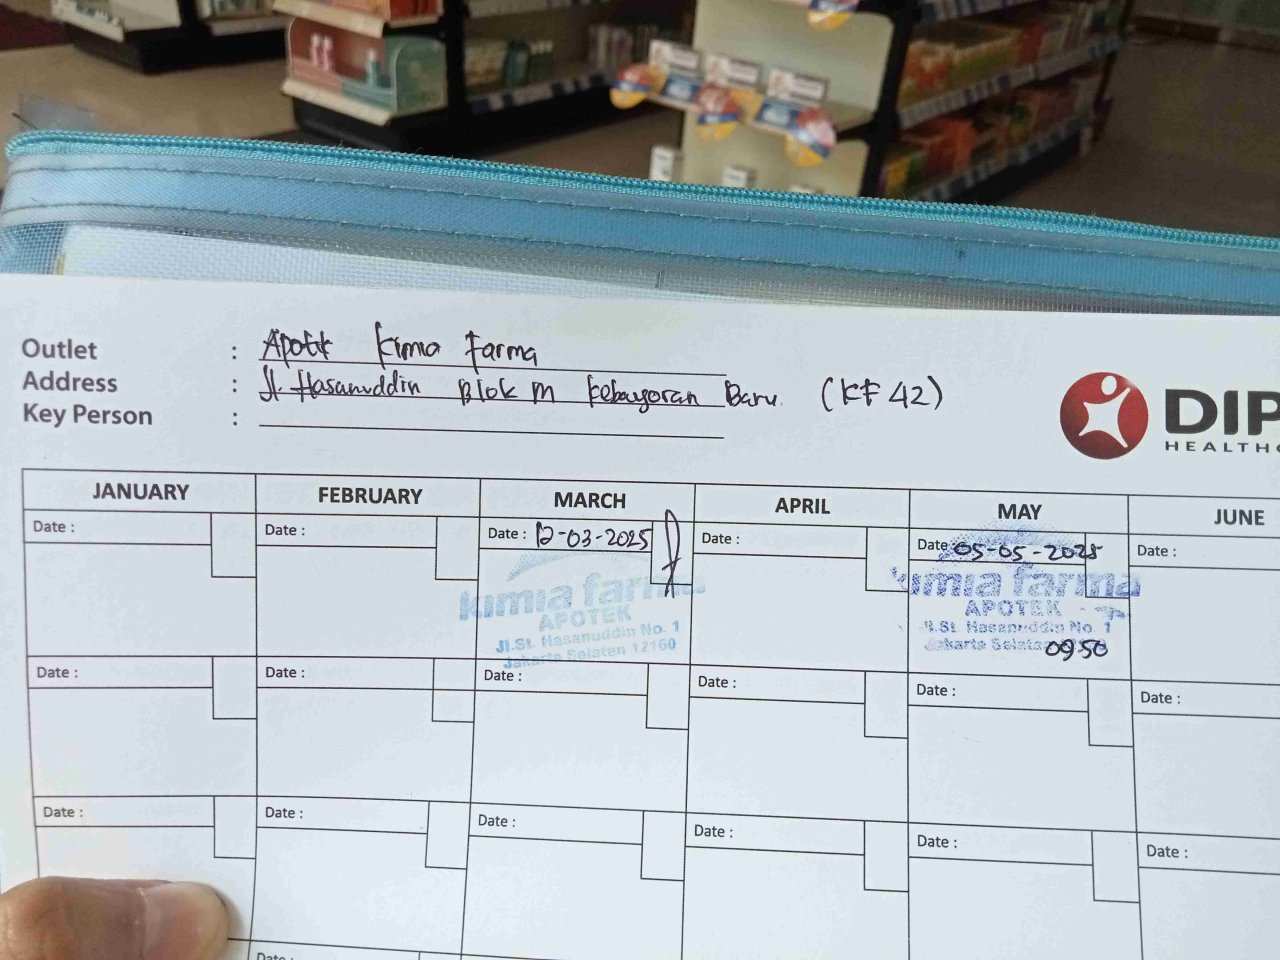 Outlet : Apotk Kimia Farma
Address : Jl. Hasanuddin Blok M Kebayoran Baru (KF 42)
Key Person :
DIP
HEALTHC
JANUARY FEBRUARY MARCH APRIL MAY JUNE
Date : Date : Date : 12-03-2025 Date : Date 05-05-2025 Date :
kimia farma kimia farma
APOTEK APOTEK
Jl.St. Hasanuddin No. 1 Jl.St. Hasanuddin No. 1
Jakarta Selatan 12160 Jakarta Selatan 0950
Date : Date : Date : Date : Date : Date :
Date : Date : Date : Date : Date : Date :
Date :